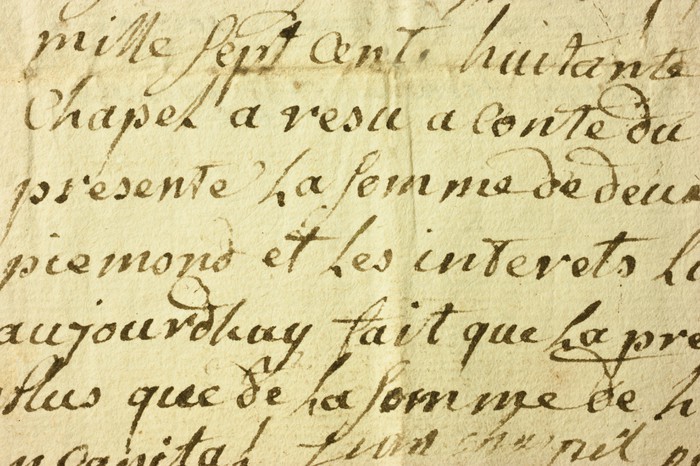 mille sept cent huitante
Chapel a resu a conte du
presente La somme de deux
piemond et Les interets Li
aujourdhuy fait que La pre
plus que de La somme de h
capital